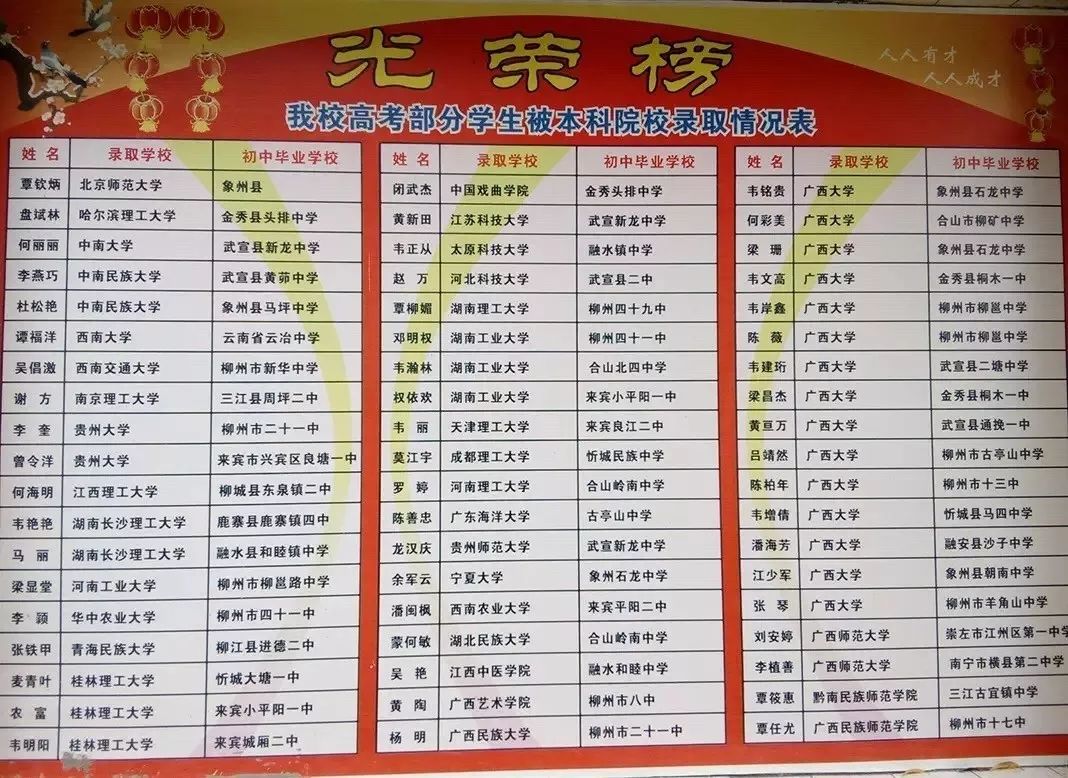 光荣榜
人人有才
人人成才
我校高考部分学生被本科院校录取情况表
姓名 录取学校 初中毕业学校
覃钦炳 北京师范大学 象州县
盘斌林 哈尔滨理工大学 金秀县头排中学
何丽丽 中南大学 武宣县新龙中学
李燕巧 中南民族大学 武宣县黄茆中学
杜松艳 中南民族大学 象州县马坪中学
谭福洋 西南大学 云南省云冶中学
吴倡激 西南交通大学 柳州市新华中学
谢方 南京理工大学 三江县周坪二中
李奎 贵州大学 柳州市二十一中
曾令洋 贵州大学 来宾市兴宾区良塘一中
何海明 江西理工大学 柳城县东泉镇二中
韦艳艳 湖南长沙理工大学 鹿寨县鹿寨镇四中
马丽 湖南长沙理工大学 融水县和睦镇中学
梁显堂 河南工业大学 柳州市柳邕路中学
李颖 华中农业大学 柳州市四十一中
张铁甲 青海民族大学 柳江县进德二中
麦青叶 桂林理工大学 忻城大塘一中
农富 桂林理工大学 来宾小平阳一中
韦明阳 桂林理工大学 来宾城厢二中
姓名 录取学校 初中毕业学校
闭武杰 中国戏曲学院 金秀头排中学
黄新田 江苏科技大学 武宣新龙中学
韦正从 太原科技大学 融水镇中学
赵万 河北科技大学 武宣县二中
覃柳媚 湖南理工大学 柳州四十九中
邓明权 湖南工业大学 柳州四十一中
韦瀚林 湖南工业大学 合山北四中学
权依欢 湖南工业大学 来宾小平阳一中
韦丽 天津理工大学 来宾良江二中
莫江宇 成都理工大学 忻城民族中学
罗婷 河南理工大学 合山岭南中学
陈善忠 广东海洋大学 古亭山中学
龙汉庆 贵州师范大学 武宣新龙中学
余军云 宁夏大学 象州石龙中学
潘闽枫 西南农业大学 来宾平阳二中
蒙何敏 湖北民族大学 合山岭南中学
吴艳 江西中医学院 融水和睦中学
黄陶 广西艺术学院 柳州市八中
杨明 广西民族大学 柳州二十一中
姓名 录取学校 初中毕业学校
韦铭贵 广西大学 象州县石龙中学
何彩美 广西大学 合山市柳矿中学
梁珊 广西大学 象州县石龙中学
韦文高 广西大学 金秀县桐木一中
韦岸鑫 广西大学 柳州市柳邕中学
陈薇 广西大学 柳州市柳邕中学
韦建珩 广西大学 武宣县二塘中学
梁昌杰 广西大学 金秀县桐木一中
黄亘万 广西大学 武宣县通挽一中
吕靖然 广西大学 柳州市古亭山中学
陈柏年 广西大学 柳州市十三中
韦增倩 广西大学 忻城县马四中学
潘海芳 广西大学 融安县沙子中学
江少军 广西大学 象州县朝南中学
张琴 广西大学 柳州市羊角山中学
刘安婷 广西师范大学 崇左市江州区第一中学
李植善 广西师范大学 南宁市横县第二中学
覃筱惠 黔南民族师范学院 三江古宜镇中学
覃任尤 广西民族师范学院 柳州市十七中